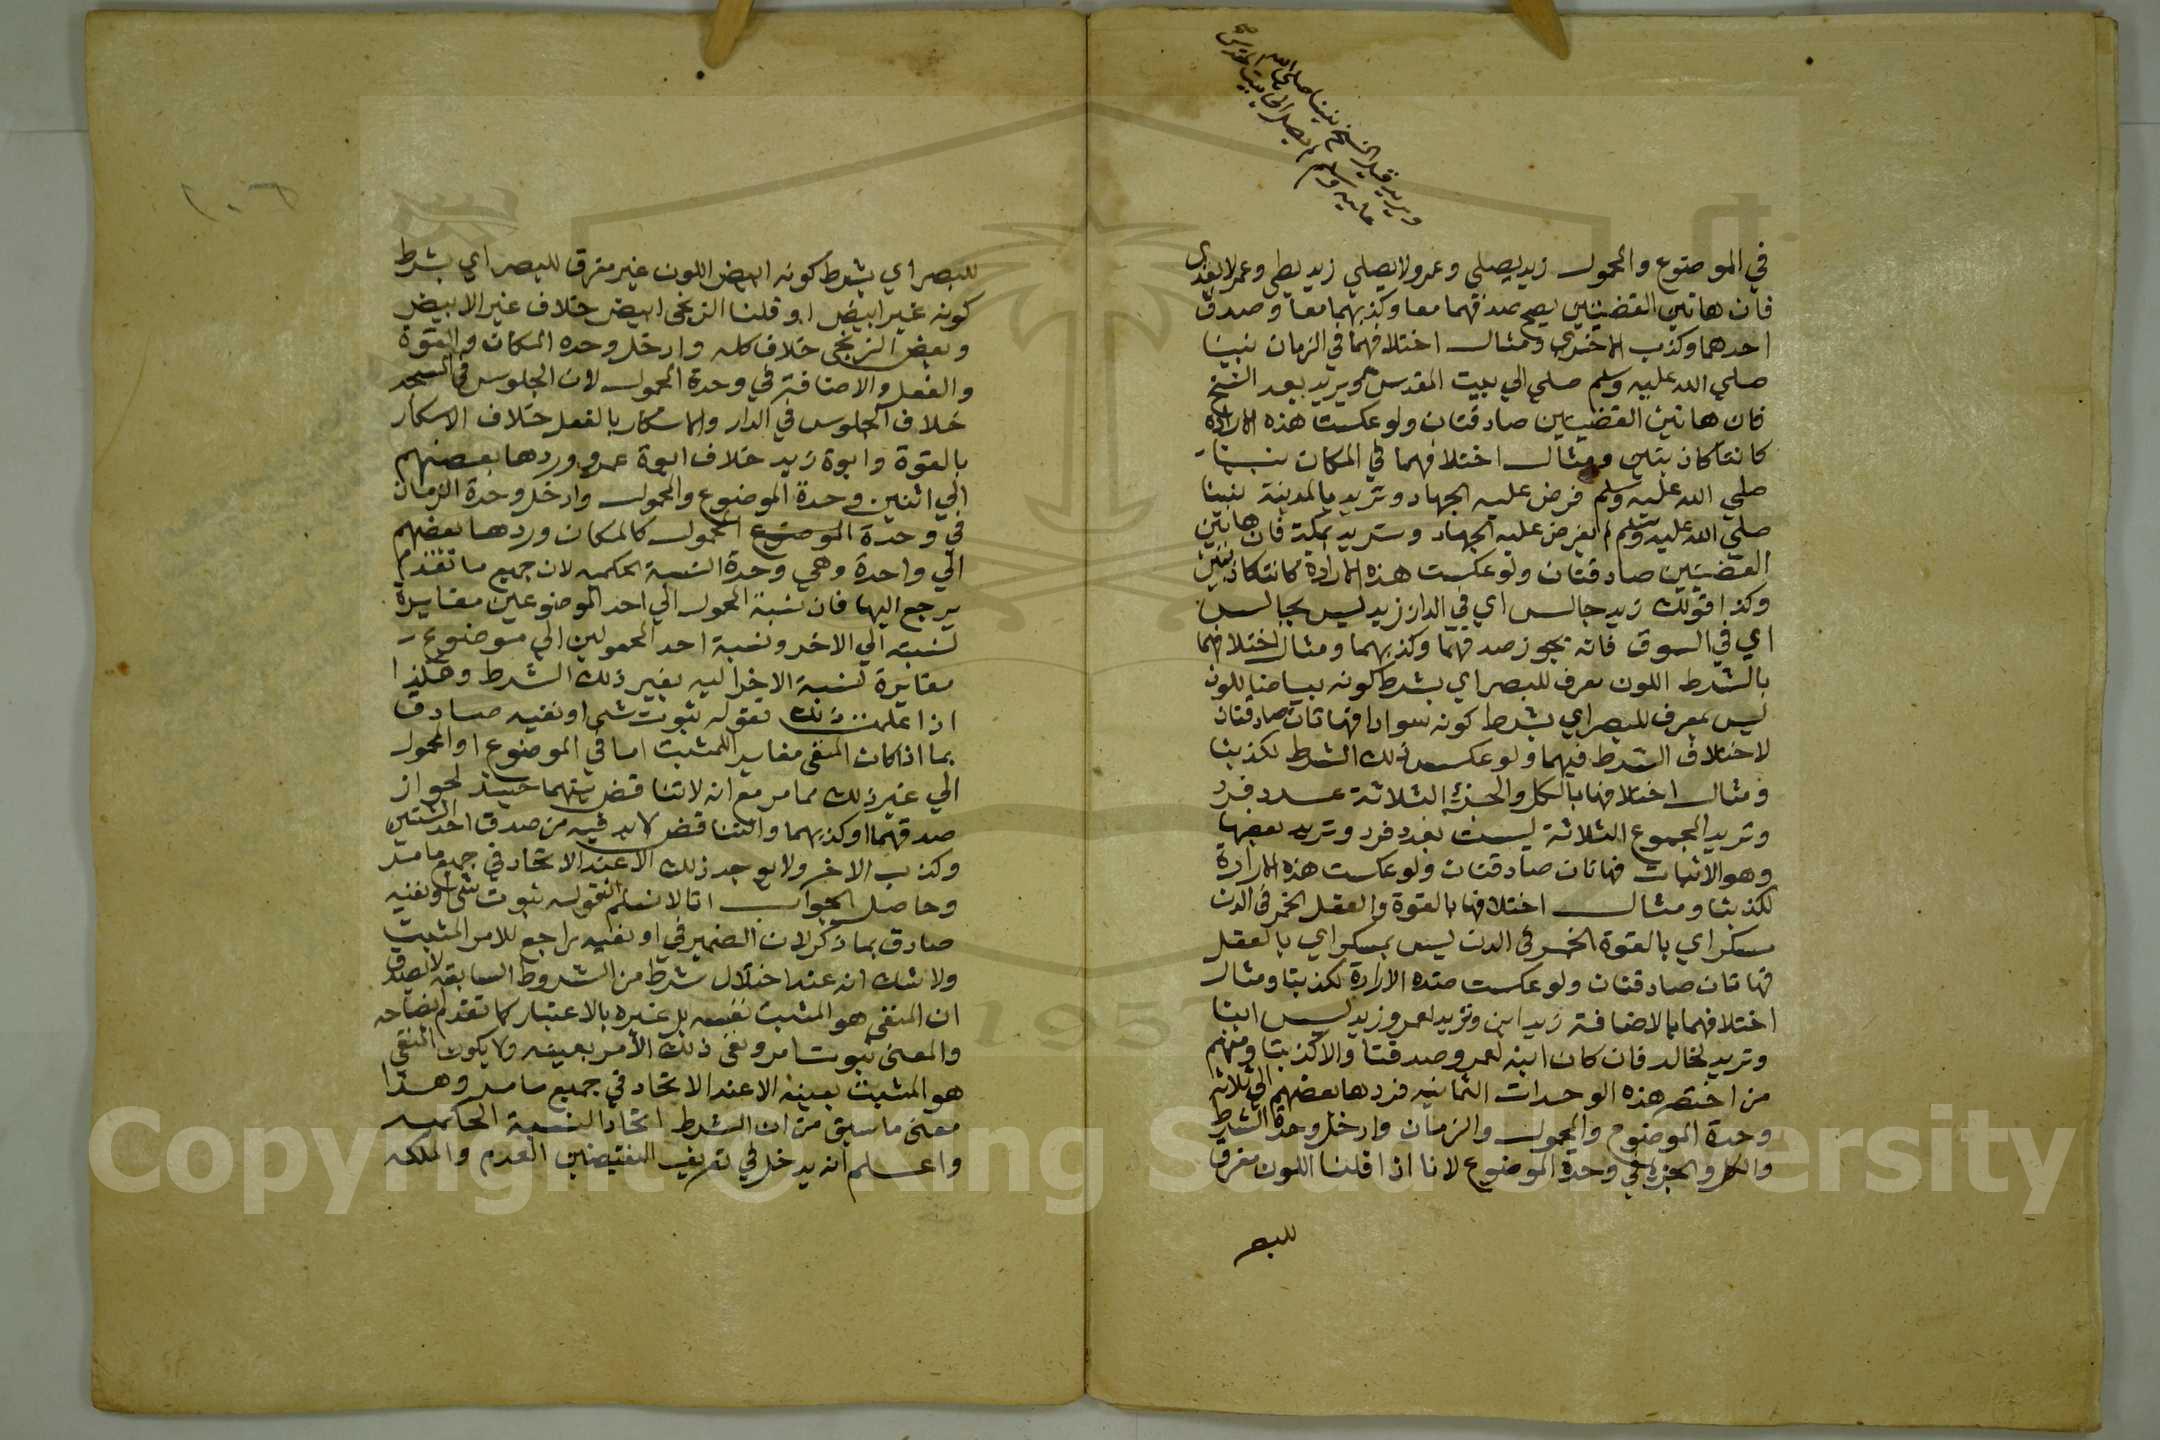 ويريد قبل النسخ نبينا صلى الله
عليه وسلم لم يصل الى بيت المقدس
في الموضوع والمحمول زيد يصلي وعمرو لا يصلي زيد يطي وعمر لا يغذى
فان هاتين القضيتين يصح صدقهما معا وكذبهما معا وصدق
احدهما وكذب الاخرى ومثال اختلافهما في الزمان نبينا
صلي الله عليه وسلم صلي الي بيت المقدس ويريد بعد النسخ
فان هاتين القضيتين صادقتان ولو عكست هذه الارادة
كانتا كاذبتين ومثال اختلافهما في المكان نبينا
صلي الله عليه وسلم فرض عليه الجهاد وتريد بالمدينة نبينا
صلي الله عليه وسلم لم يفرض عليه الجهاد وتريد بمكة فان هاتين
القضيتين صادقتان ولو عكست هذه الارادة كانتا كاذبتين
وكذا قولك زيد جالس اي في الدار زيد ليس بجالس
اي في السوق فانه يجوز صدقهما وكذبهما ومثال اختلافهما
بالشرط اللون مفرق للبصر اي بشرط كونه بياضا اللون
ليس بمفرق للبصر اي بشرط كونه سوادا فهاتان صادقتان
لاختلاف الشرط فيهما ولو عكس ذلك الشرط لكذبتا
ومثال اختلافهما بالكل والجزء الثلاثة عدد فرد
وتريد المجموع الثلاثة ليست بعدد فرد وتريد بعضها
وهو الاثنان فهاتان صادقتان ولو عكست هذه الارادة
لكذبتا ومثال اختلافهما بالقوة والفعل الخمر في الدن
مسكر اي بالقوة الخمر في الدن ليس بمسكر اي بالفعل
فهاتان صادقتان ولو عكست هذه الارادة لكذبتا ومثال
اختلافهما بالاضافة زيد ابن وتريد لعمرو زيد ليس ابنا
وتريد لخالد فان كان ابنه لعمرو صدقتا والا كذبتا ومنهم
من اختصر هذه الوحدات الثمانيه فردها بعضهم الي ثلاثة
وحدة الموضوع والمحمول والزمان وادخل وحدة الشرط
والكل والجزء في وحدة الموضوع لانا اذا قلنا اللون مفرق
للبصر
للبصر اي بشرط كونه ابيض اللون غير مفرق للبصر اي بشرط
كونه غير ابيض او قلنا الزنجى ابيض خلاف غير الابيض
وبعض الزنجى خلاف كله وادخل وحده المكان والقوة
والفعل والاضافة في وحدة المحمول لان الجلوس في المسجد
خلاف الجلوس في الدار والاسكار بالفعل خلاف الاسكار
بالقوة وابوة زيد خلاف ابوة عمرو وردها بعضهم
الي اثنين وحدة الموضوع والمحمول وادخل وحدة الزمان
في وحدة الموضوع المحمول كالمكان وردها بعضهم
الي واحدة وهي وحدة النسبة الحكميه لان جميع ما تقدم
يرجع اليها فان نسبة المحمول الي احد الموضوعين مغايرة
لنسبته الي الاخر ونسبة احد المحمولين الي موضوع
مغايرة لنسبة الاخر اليه بغير ذلك الشرط وهكذا
اذا علمت ذلك فقوله ثبوت شى او نفيه صادق
بما اذا كان المنفى مغاير للمثبت اما في الموضوع او المحمول
الي غير ذلك مما مر مع انه لا تناقض بينهما حينيذ لجواز
صدقهما او كذبهما والتناقض لا بد فيه من صدق احد الشيئين
وكذب الاخر ولا يوجد ذلك الا عند الاتحاد في جميع ما مر
وحاصل الجواب انا لا نسلم ان قوله ثبوت شى او نفيه
صادق بما ذكر لان الضمير في او نفيه راجع للامر المثبت
ولا شك انه عند اختلال شرط من الشروط السابقه لا يصدق
ان المنفى هو المثبت نفسه بل غيره بالاعتبار كما تقدم ايضاحه
والمعنى ثبوت امر ونفى ذلك الامر بعينه ولا يكون المنفى
هو المثبت بعينه الا عند الاتحاد في جميع ما مر وهذا
معنى ما سبق من ان الشرط اتحاد النسبة الحكميه
واعلم انه يدخل في تعريف النقيضين العدم والملكه
Copyright © King Saud University
1957